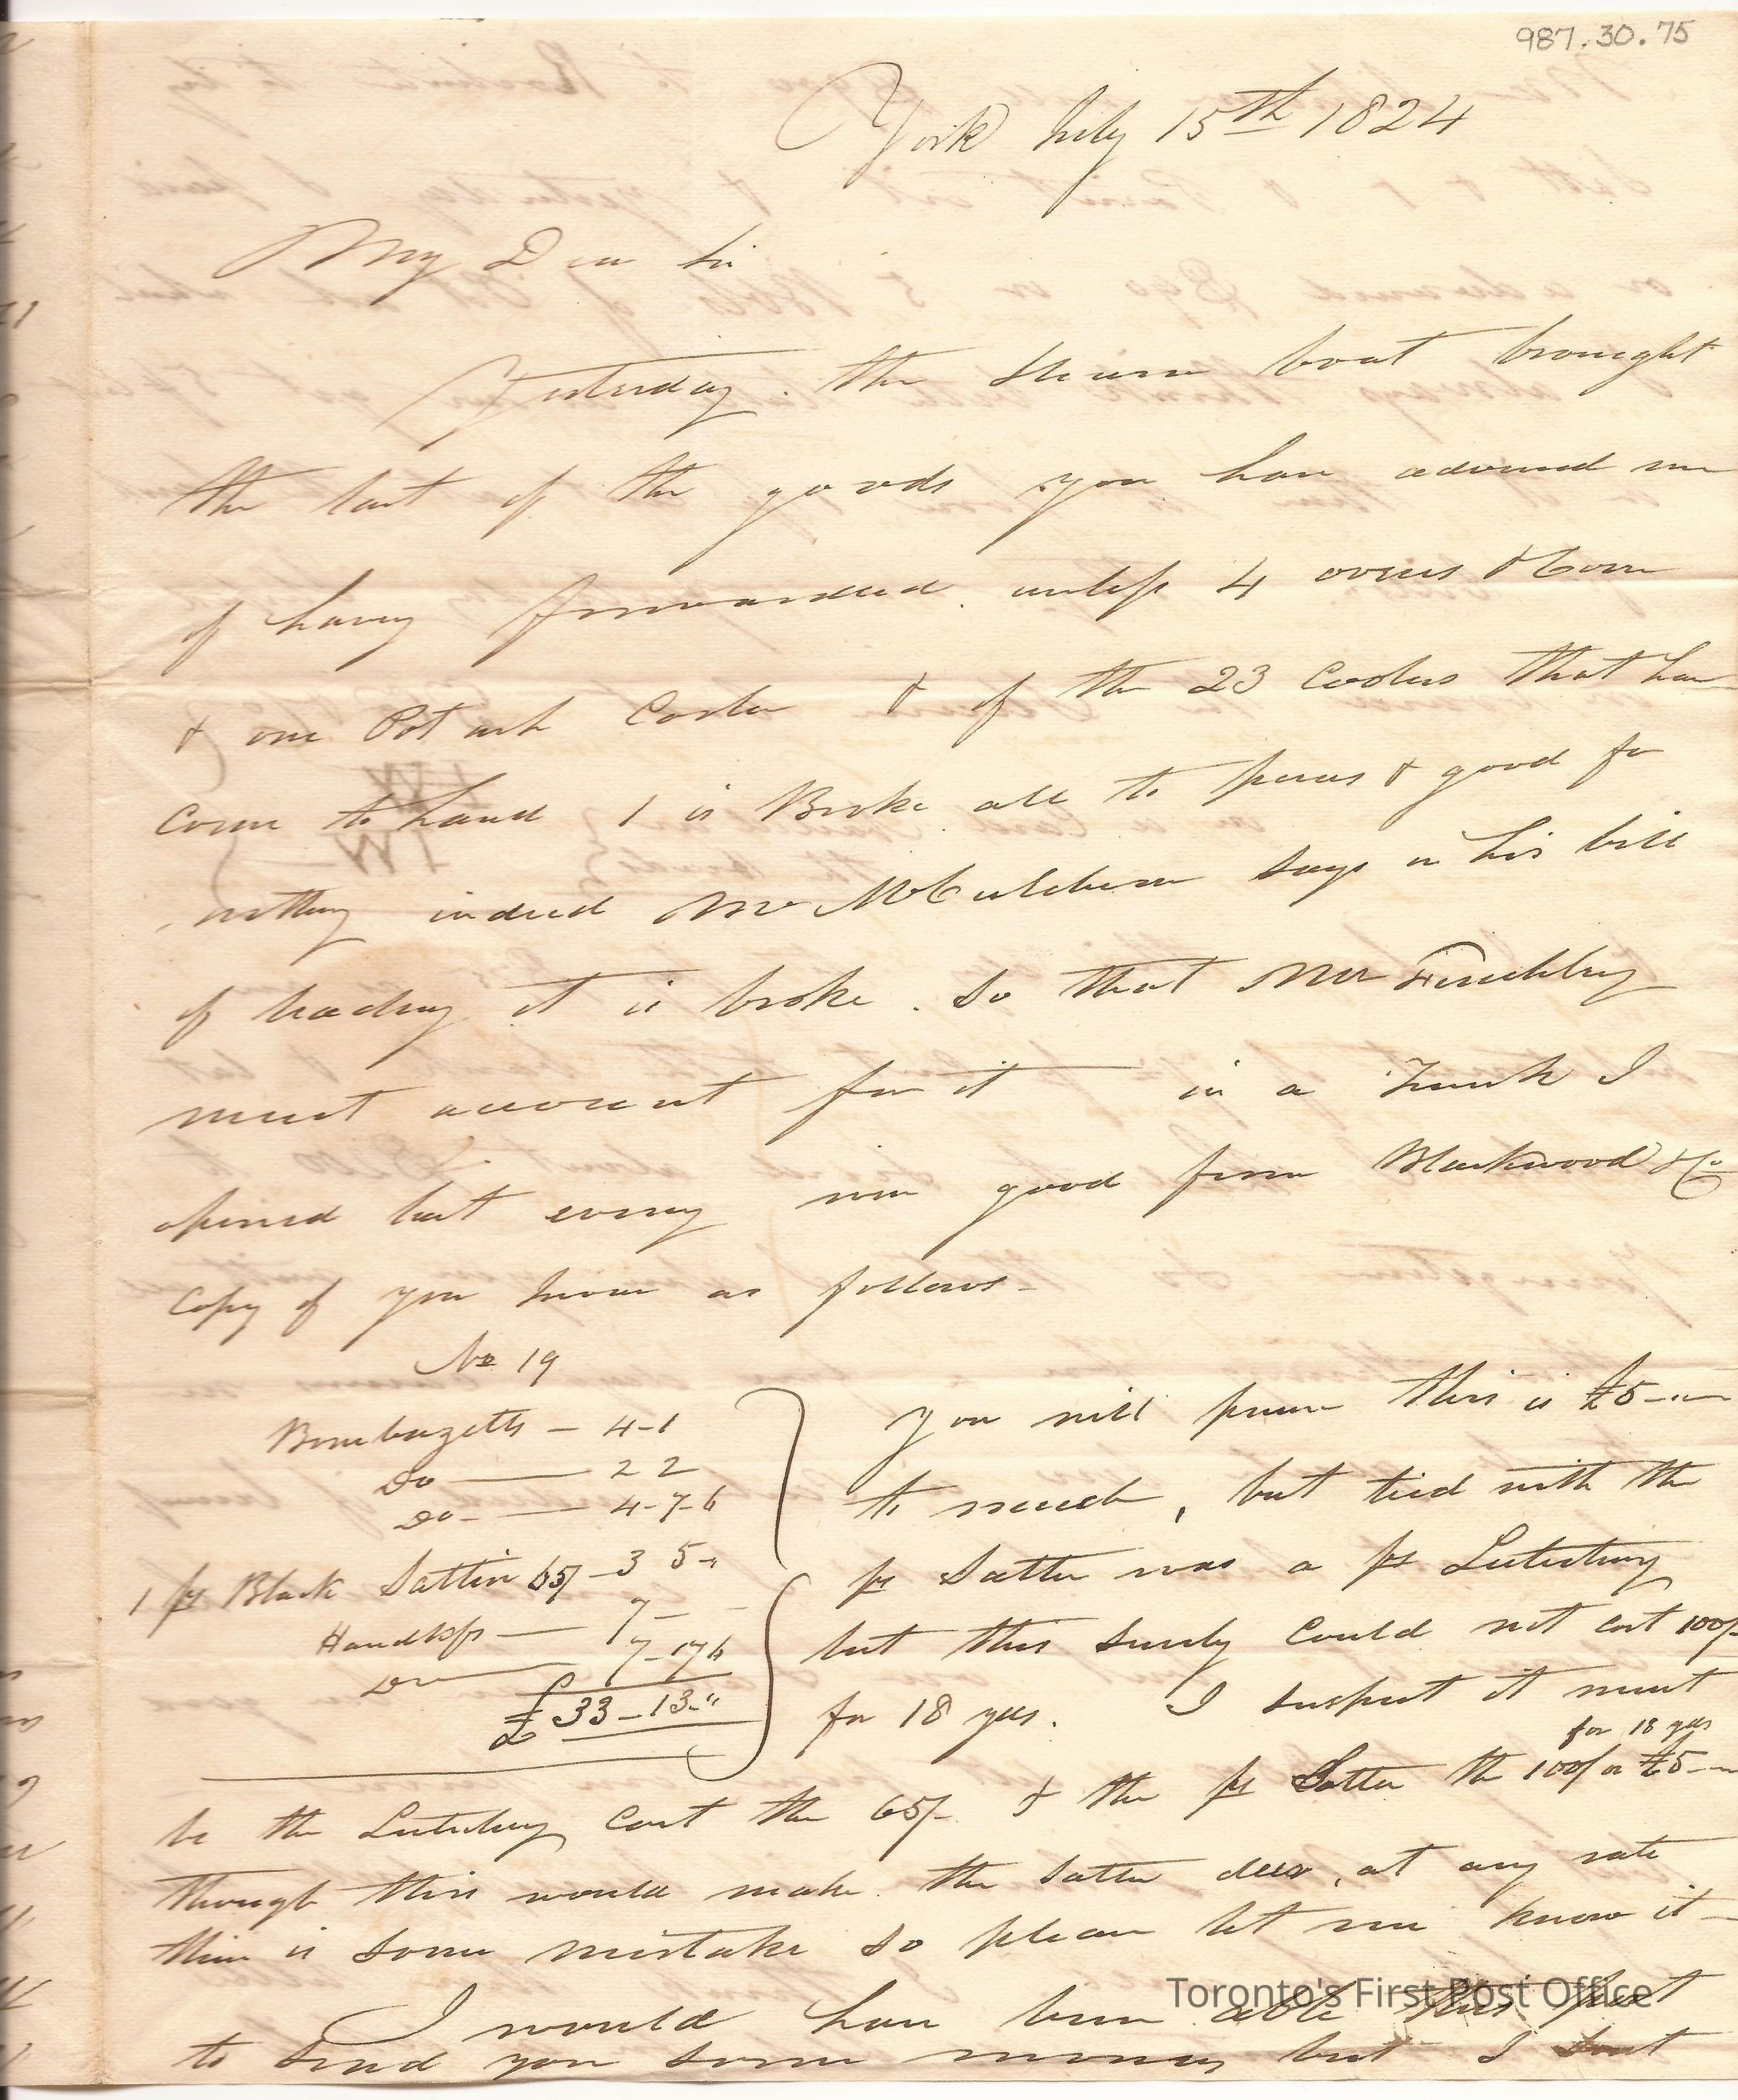 987.30.75
York July 15th 1824
My Dear Sir
Yesterday the Steam boat brought
the last of the goods you have advised me
of having forwarded unless 4 ovens &
& one Pot ash Cooler & of the 23 Coolers that have
Come to hand 1 is Broke all to pieces & good for
nothing indeed Mr McCutcheon says in his bill
of leading it is broke. So that Mr
must account for it in a Trunk I
opened last evening new good from Blackwood & Co
Copy of your Invoice as follows -
No 19
Bombazetts - 4-1
Do - 2 2
Do - 4-7-6
1 ps Black Sattin 65/ - 3 5 -"
Handkfs - 7 - -
Do 7-17 6
£ 33-13-"
you will this is £5-"-"
to much, but tied with the
ps Sattin was a ps Lutestring
but this surely could not cost 100/-
for 18 yds. I suspect it must
for 18 yds
be the Lutestring Cost the 65/- & the ps Sattin the 100/ or £5-"-"
though this would make the Sattin dear, at any rate
there is some mistake so please let me know it -
I would have been able this post
to send you some money but I sent
Toronto's First Post Office